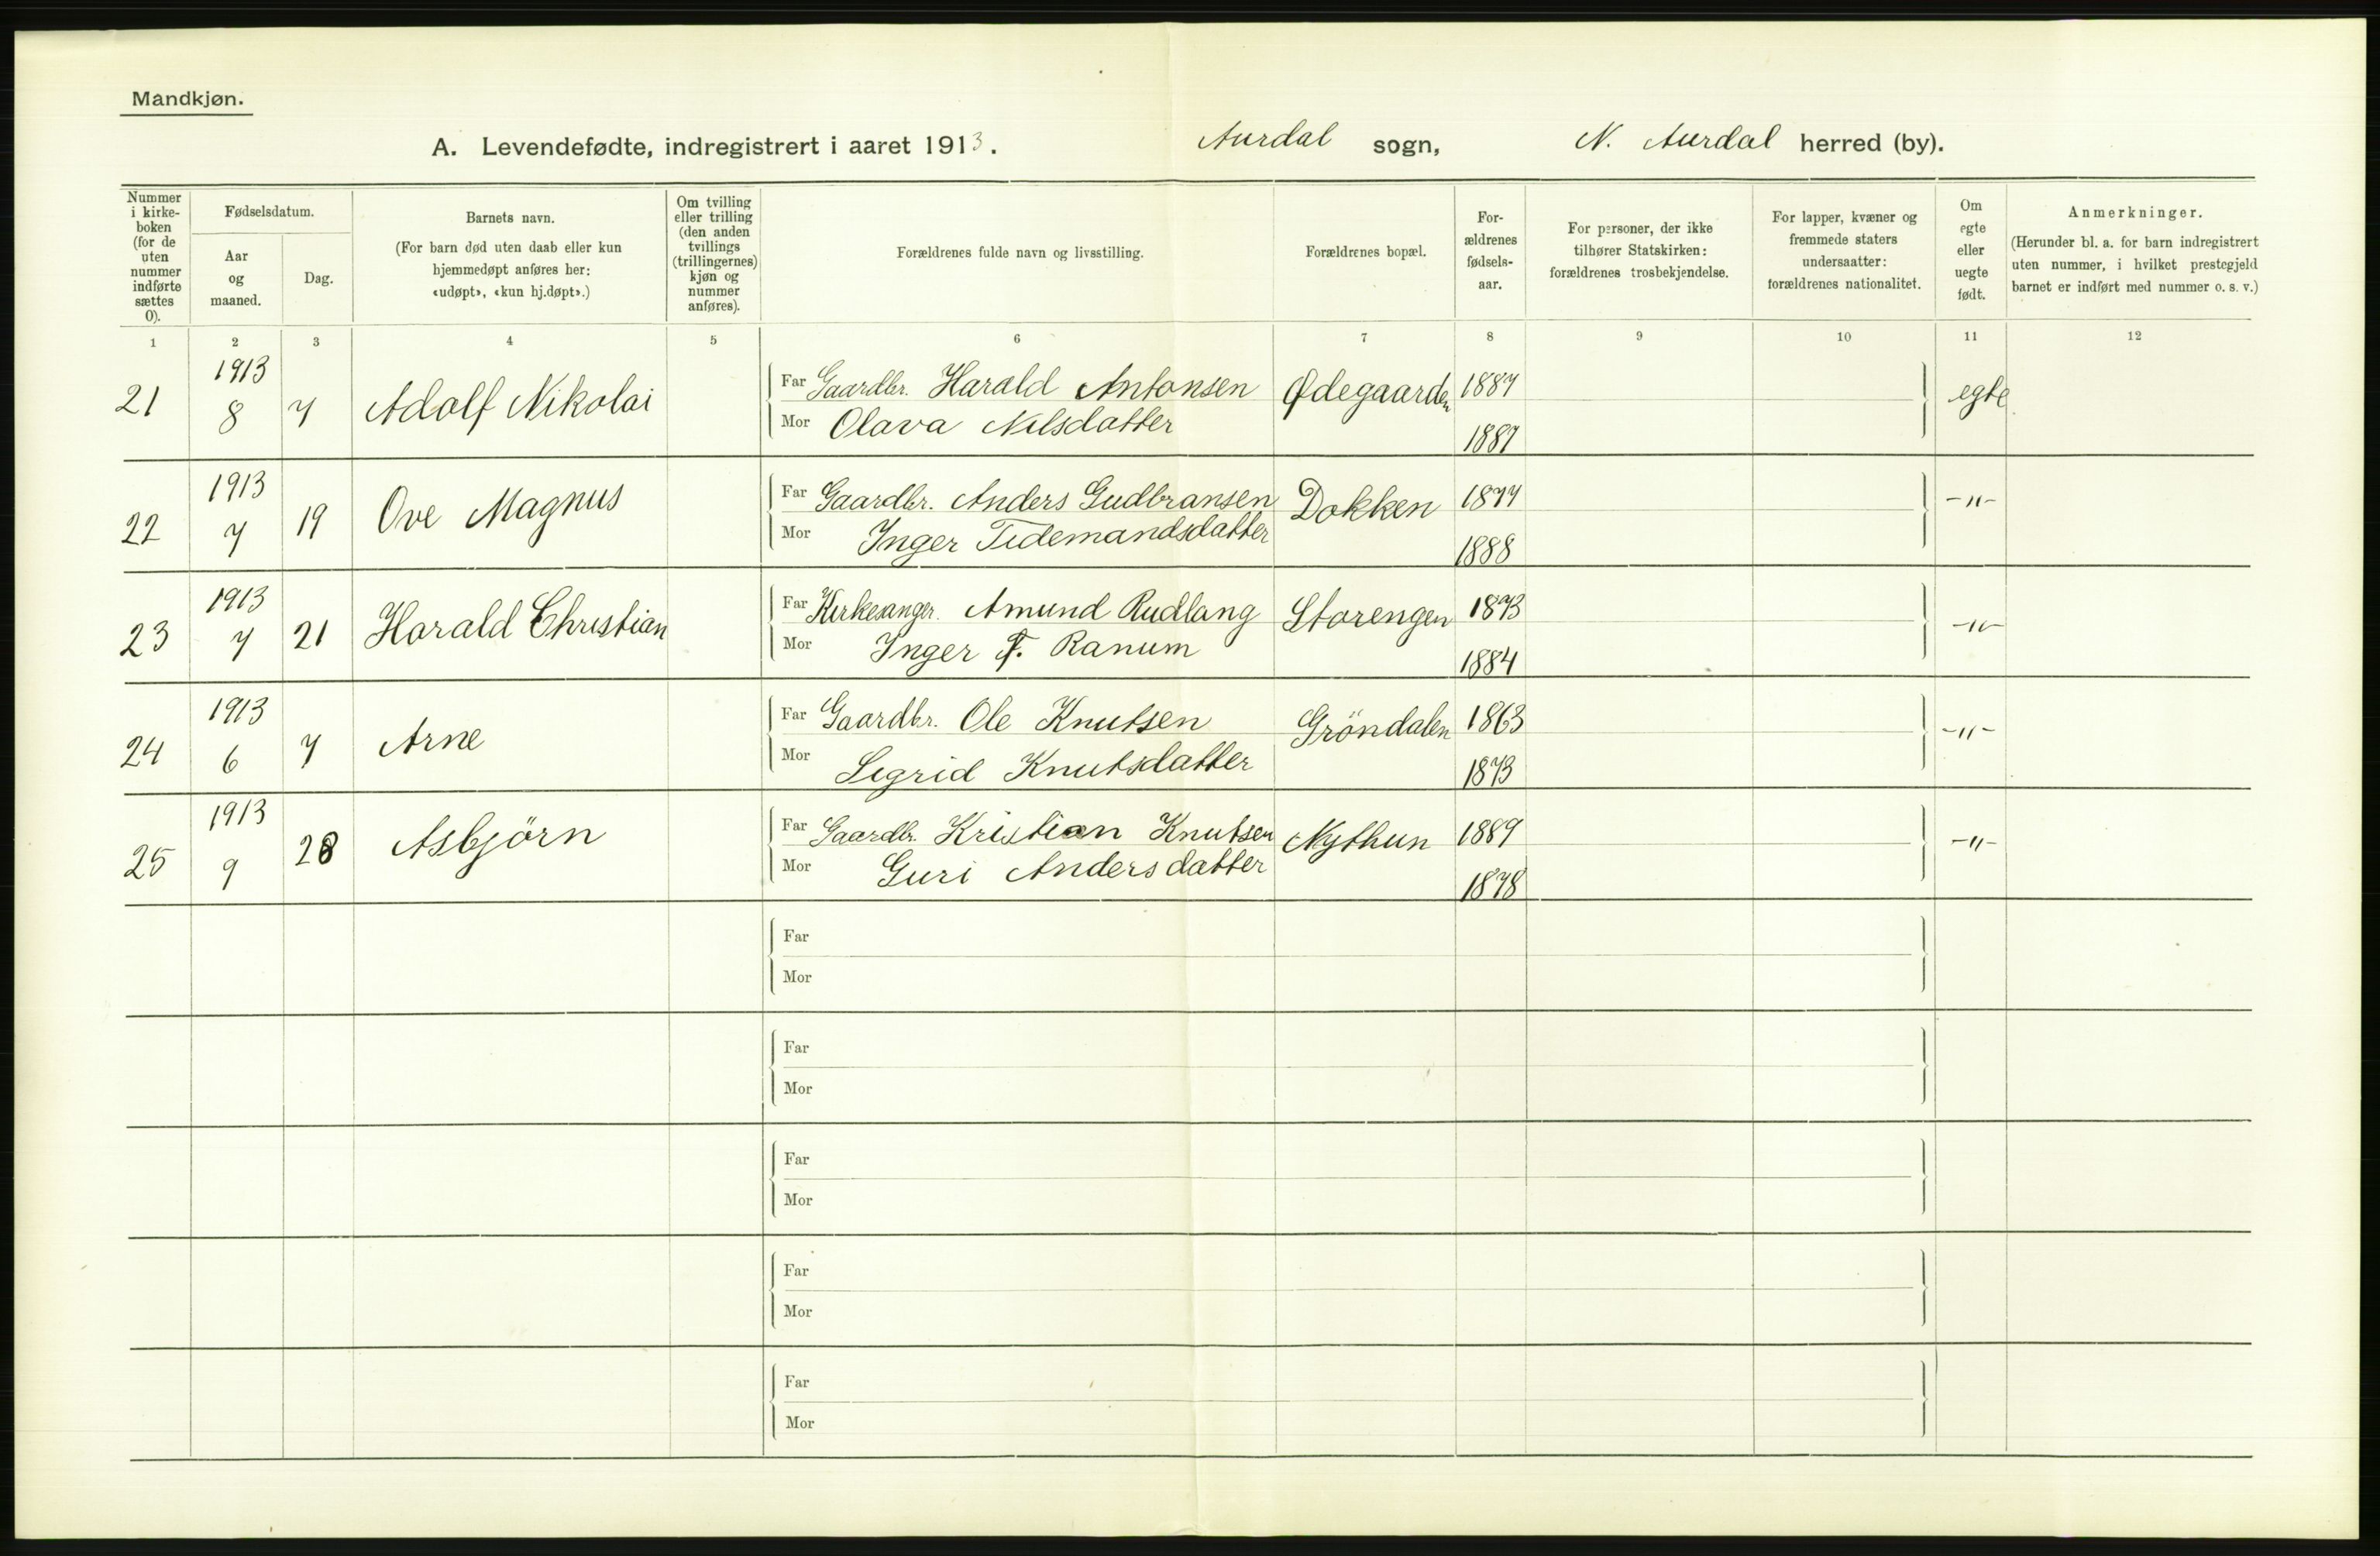 Mandkjøn.
A. Levendefødte, indregistrert i aaret 1913. Aurdal sogn, N. Aurdal herred (by).
Nummer i kirke-boken (for de uten nummer indførte sættes 0).
Fødselsdatum.
Aar og maaned.
Dag.
Barnets navn.
(For barn død uten daab eller kun hjemmedøpt anføres her: «udøpt», «kun hj.døpt».)
Om tvilling eller trilling (den anden tvillings (trillingernes) kjøn og nummer anføres).
Forældrenes fulde navn og livsstilling.
Forældrenes bopæl.
For-ældrenes fødsels-aar.
For personer, der ikke tilhører Statskirken: forældrenes trosbekjendelse.
For lapper, kvæner og fremmede staters undersaatter: forældrenes nationalitet.
Om egte eller uegte født.
Anmerkninger.
(Herunder bl. a. for barn indregistrert uten nummer, i hvilket prestegjeld barnet er indført med nummer o. s. v.)
1 2 3 4 5 6 7 8 9 10 11 12
21 1913 8 7 Adolf Nikolai Far Gaardbr. Harald Antonsen Ødegaarden 1887 egte
Mor Olava Nilsdatter 1887
22 1913 7 19 Ove Magnus Far Gaardbr. Anders Gudbransen Dokken 1877 -"-
Mor Inger Tidemandsdatter 1888
23 1913 7 21 Harald Christian Far Kirkesanger. Amund Rudlang Storengen 1873 -"-
Mor Inger T. Ranum 1884
24 1913 6 7 Arne Far Gaardbr. Ole Knutsen Gröndalen 1863 -"-
Mor Sigrid Knutsdatter 1873
25 1913 9 28 Asbjörn Far Gaardbr. Kristian Knutsen Nythun 1889 -"-
Mor Guri Andersdatter 1878
Far
Mor
Far
Mor
Far
Mor
Far
Mor
Far
Mor